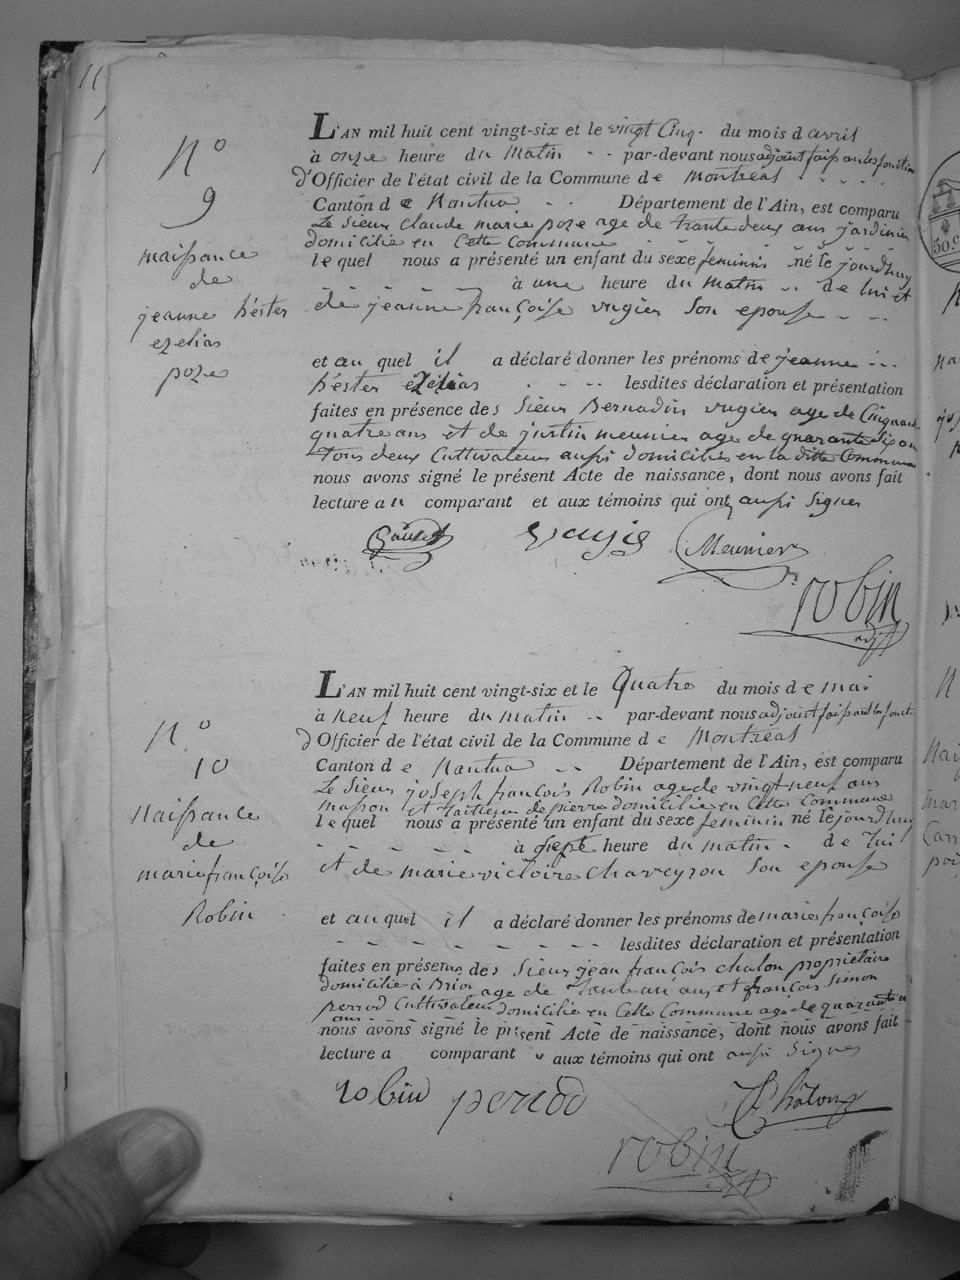 N° 9
naissance
de
jeanne héster
ezelias
poze
L'AN mil huit cent vingt-six et le vingt Cinq. du mois d avril
à onze heure du Matin par-devant nous adjoint faisant les fonction
d'Officier de l'état civil de la Commune de Montréal
Canton de Nantua Département de l'Ain, est comparu
Le Sieur Claude marie poze age de trante deux ans jardinier
domicilié en Cette Commune
lequel nous a présenté un enfant du sexe feminin né le jourdhuy
à une heure du matin de lui et
de jeanne françoise vugier son epouse
et auquel il a déclaré donner les prénoms de jeanne
héster ezélias lesdites déclaration et présentation
faites en présence des Sieur Bernadin vugier age de Cinquante
quatre ans et de justin meunier age de quarante six an
Tous deux Cultivateurs aussi domicilies en la ditte Commune
nous avons signé le présent Acte de naissance, dont nous avons fait
lecture au comparant et aux témoins qui ont aussi Signer
Meunier
robin
N° 10
Naissance
de
marie françoise
Robin
L'AN mil huit cent vingt-six et le Quatre du mois de mai
à Neuf heure du matin par-devant nous adjoint faisant les fonct.
d Officier de l'état civil de la Commune de Montréal
Canton de Nantua Département de l'Ain, est comparu
Le Sieur joseph françois Robin age de vingt neuf ans
masson et Taitieur de pierre domicilié en Cette Commune
lequel nous a présenté un enfant du sexe feminin né le jourdhuy
à Siept heure du matin de lui
et de marie victoire Chaveyron Son epouse
et auquel il a déclaré donner les prénoms de marie françoise
lesdites déclaration et présentation
faites en présence des Sieur jean françois chalon propriétaire
domicilié à Brion age de ans et françois Simon
perrod Cultivateur domicilié en Cette Commune age de quarante
ans
nous avons signé le présent Acte de naissance, dont nous avons fait
lecture a comparant aux témoins qui ont aussi Signer
robin perrod Châlon
robin